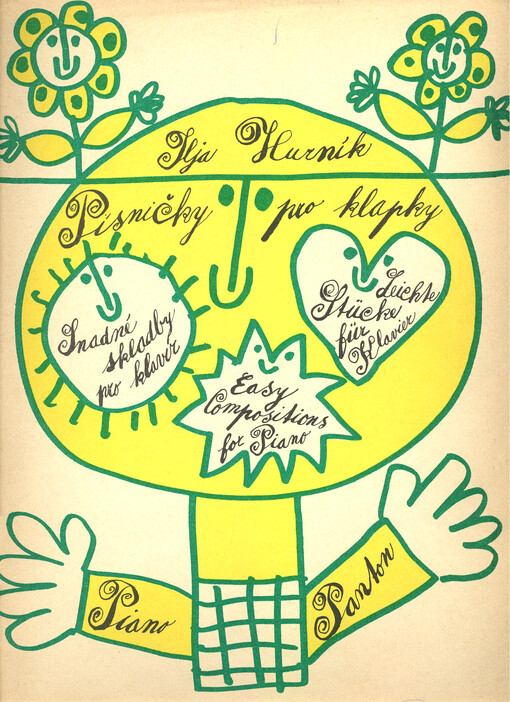 Ilja Hurník
Písničky pro klapky
Snadné
skladby
pro klavír
Leichte
Stücke
für
Klavier
Easy
Compositions
for Piano
Piano
Panton